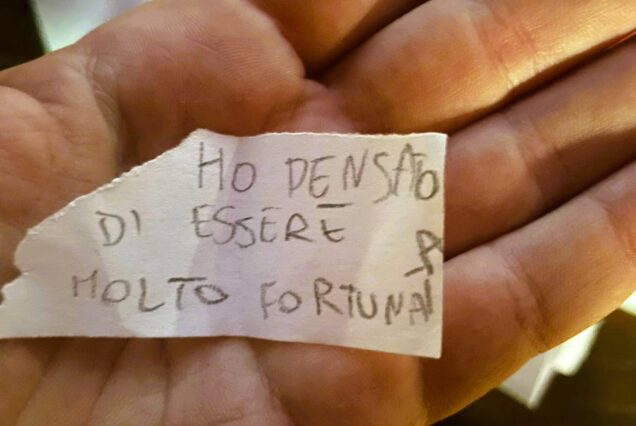 HO PENSATO
DI ESSERE
MOLTO FORTUNA